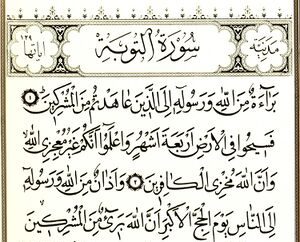 مدنية سُورَةُ التَّوبَة آياتها ١٢٩
بَرَآءَةٌ مِّنَ ٱللَّهِ وَرَسُولِهِۦٓ إِلَى ٱلَّذِينَ عَٰهَدتُّم مِّنَ ٱلْمُشْرِكِينَ ١
فَسِيحُوا۟ فِى ٱلْأَرْضِ أَرْبَعَةَ أَشْهُرٍ وَٱعْلَمُوٓا۟ أَنَّكُمْ غَيْرُ مُعْجِزِى ٱللَّهِ
وَأَنَّ ٱللَّهَ مُخْزِى ٱلْكَٰفِرِينَ ٢ وَأَذَٰنٌ مِّنَ ٱللَّهِ وَرَسُولِهِۦٓ
إِلَى ٱلنَّاسِ يَوْمَ ٱلْحَجِّ ٱلْأَكْبَرِ أَنَّ ٱللَّهَ بَرِىٓءٌ مِّنَ ٱلْمُشْرِكِينَ